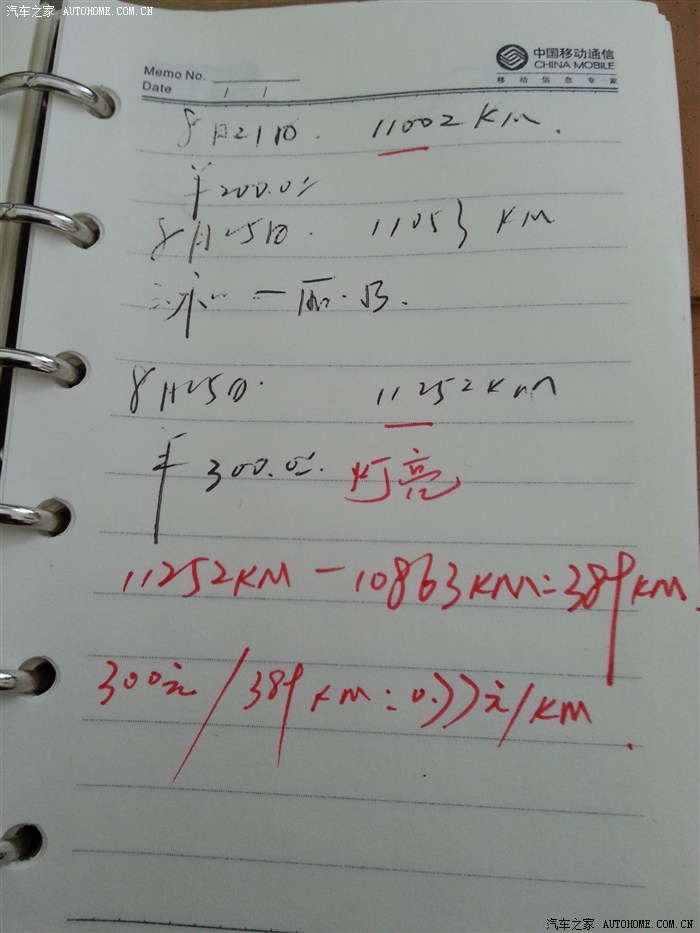 汽车之家 AUTOHOME.COM.CN
中国移动通信
CHINA MOBILE
移动信息专家
Memo No.
Date / /
8月21日. 11002KM.
¥200.0元
8月25日. 11053 KM
一瓶.
8月25日. 11252KM
¥300.0元. 灯亮
11252KM-10863KM=389KM.
300元/389KM=0.77元/KM.
汽车之家 AUTOHOME.COM.CN